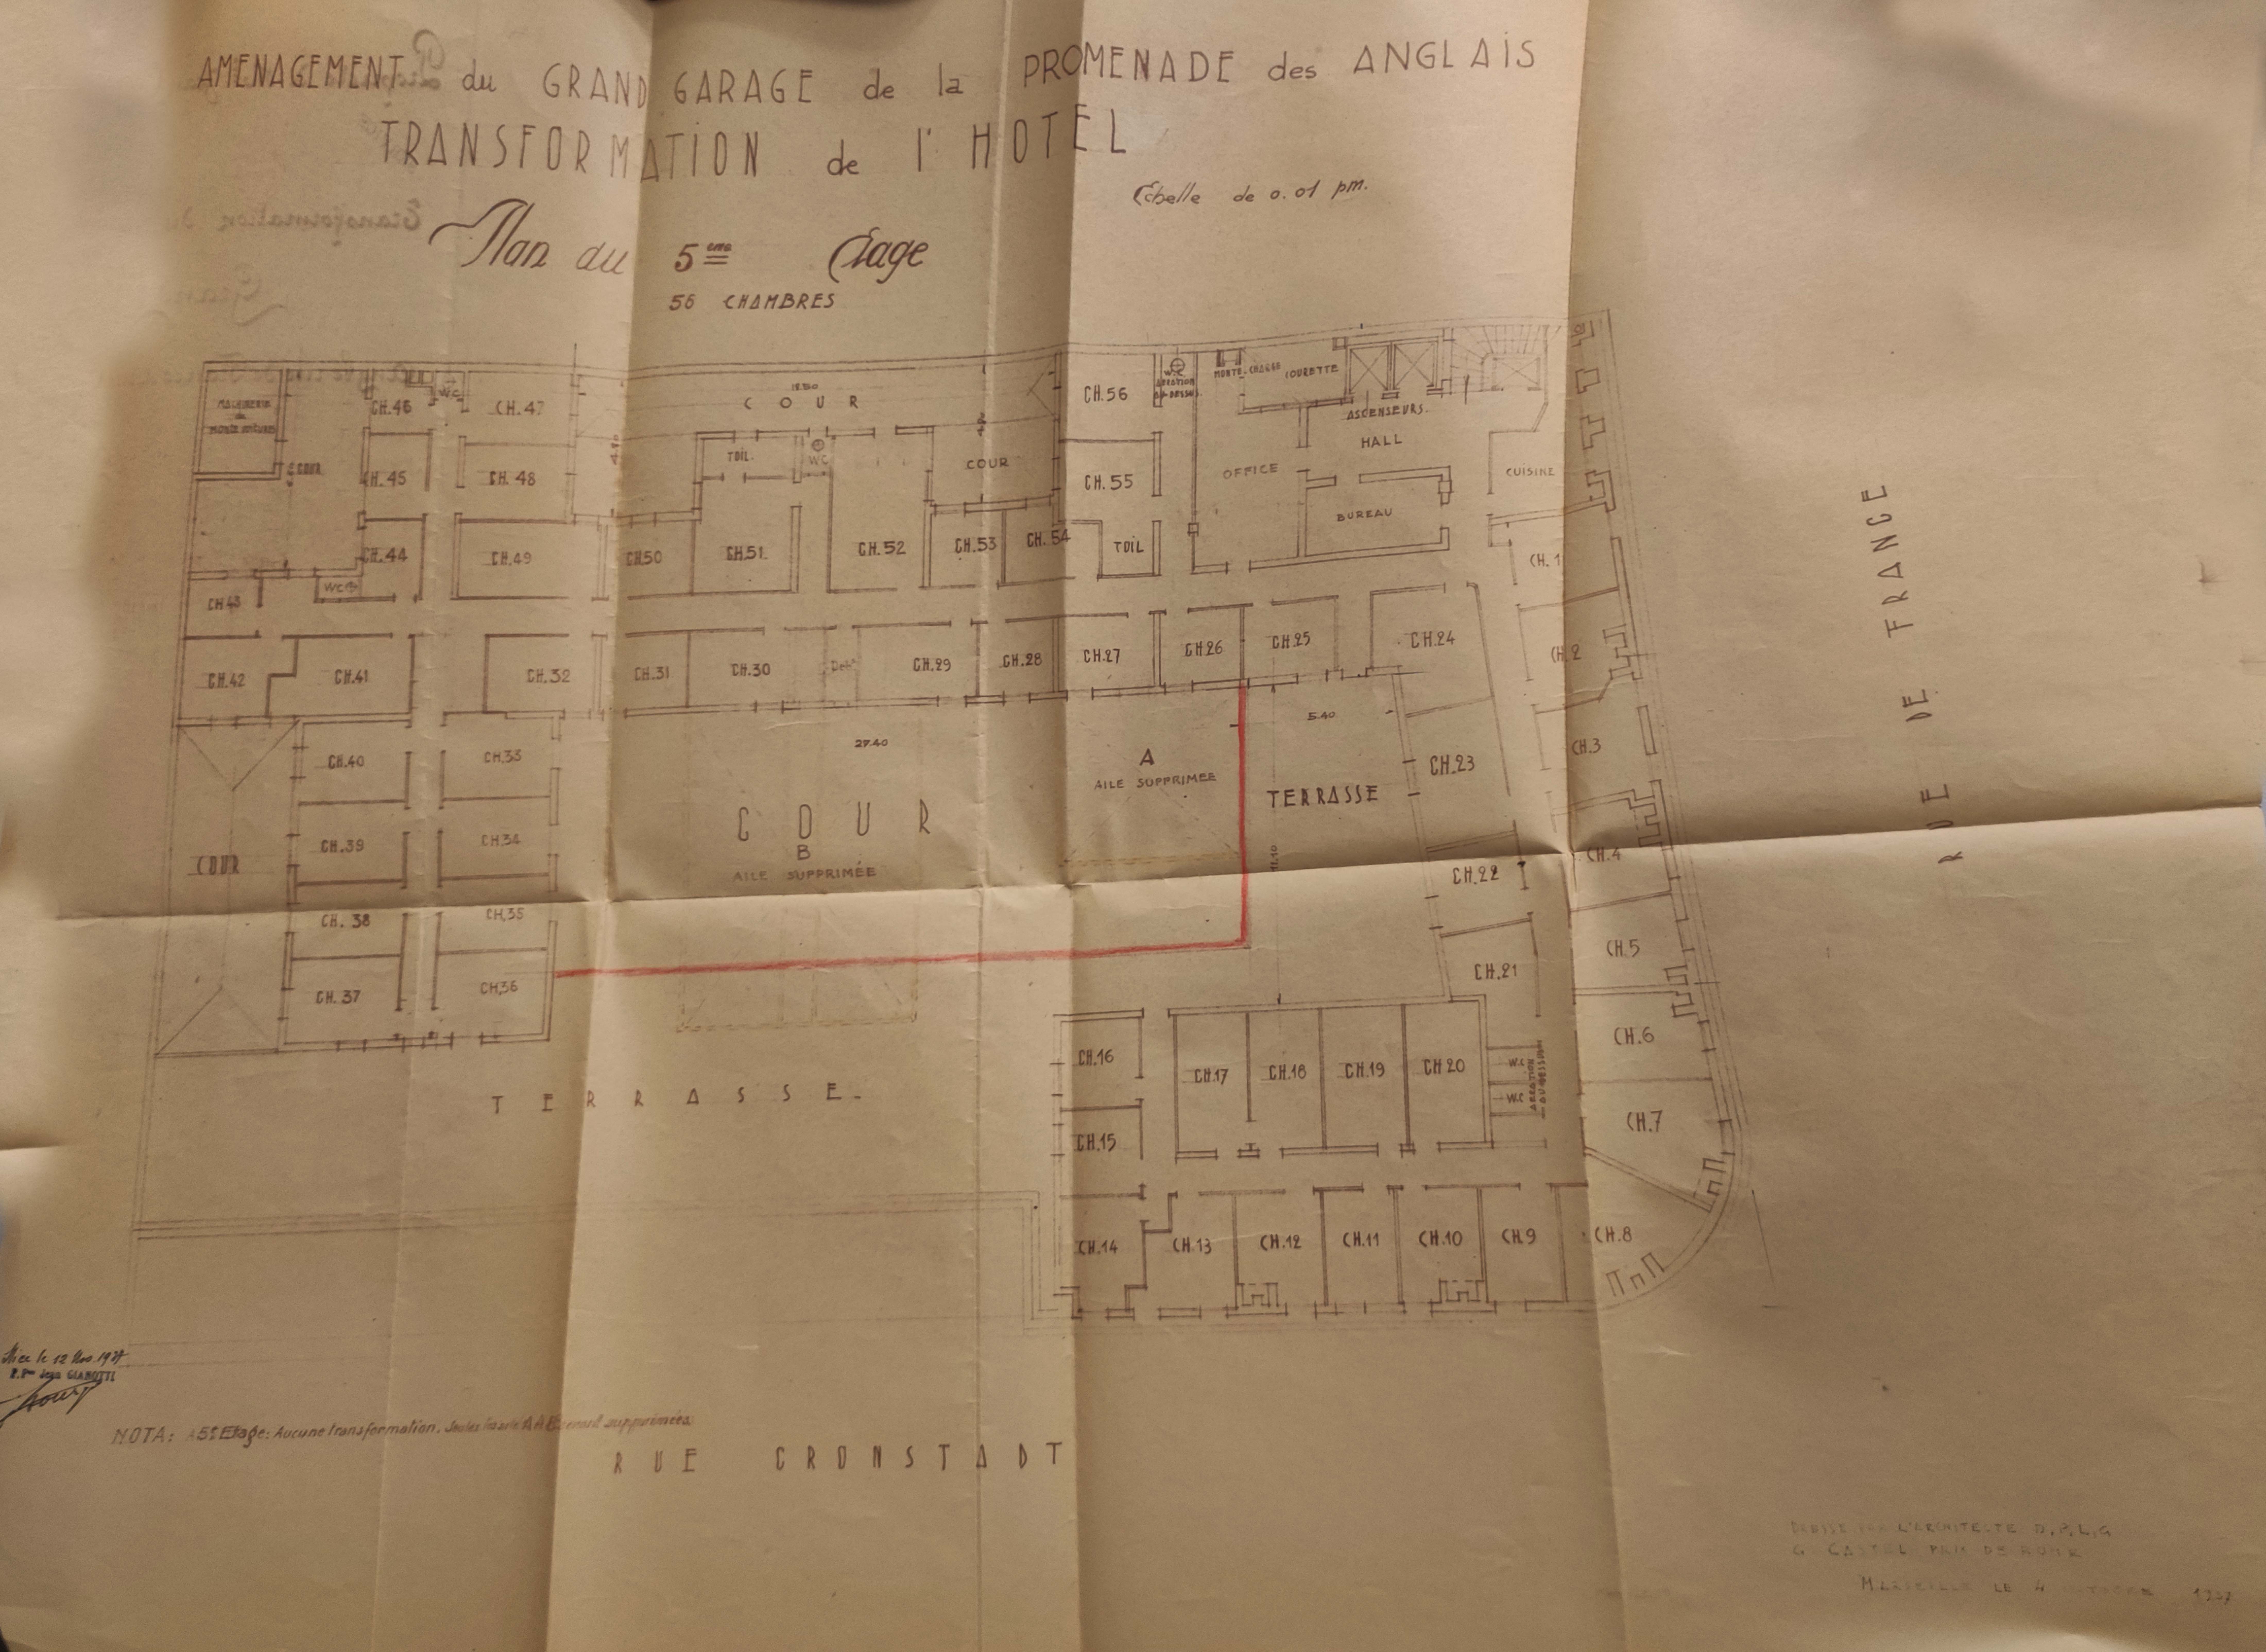 AMENAGEMENT du GRAND GARAGE de la PROMENADE des ANGLAIS
TRANSFORMATION de l'HOTEL
Echelle de 0.01 pm.
Plan du 5eme Etage
56 CHAMBRES
MACHINERIE
COUR
CH.46
W.C
CH.47
CH.45
CH.48
CH.44
CH.49
W.C
CH.43
CH.42
CH.41
CH.32
COUR
TOIL.
W.C
COUR
CH.50
CH.51
CH.52
CH.53
CH.54
CH.56
CH.55
TOIL
W.C
AERATION
AU-DESSUS
MONTE-CHARGE
COURETTE
ASCENSEURS.
HALL
OFFICE
BUREAU
CUISINE
CH.1
CH.2
CH.3
CH.4
CH.5
CH.6
CH.7
CH.8
CH.31
CH.30
CH.29
CH.28
CH.27
CH.26
CH.25
CH.24
27.40
5.40
A
AILE SUPPRIMÉE
TERRASSE
11.10
CH.23
CH.22
CH.21
COUR
B
AILE SUPPRIMÉE
COUR
CH.40
CH.33
CH.39
CH.34
CH.38
CH.35
CH.37
CH.36
TERRASSE.
CH.16
CH.17
CH.18
CH.19
CH.20
W.C
W.C
AERATION
AU-DESSUS
CH.15
CH.14
CH.13
CH.12
CH.11
CH.10
CH.9
RUE DE FRANCE
Nice le 12 Nov. 1937
Jean GIANOTTI
NOTA: 5e Etage: Aucune transformation. Seules supprimées
RUE CRONSTADT
DRESSÉ PAR L'ARCHITECTE D.P.L.G
G CASTEL PRIX DE ROME
MARSEILLE LE 4 OCTOBRE 1937